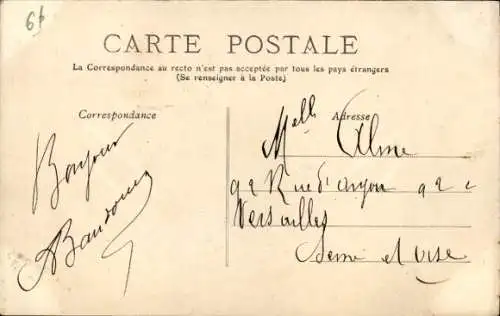 6f
CARTE POSTALE
La Correspondance au recto n'est pas acceptée par tous les pays étrangers
(Se renseigner à la Poste)
Correspondance
Adresse
Bonjour
Mell Alme
92 Rue d'anjou 92
Versailles
Seine et oise